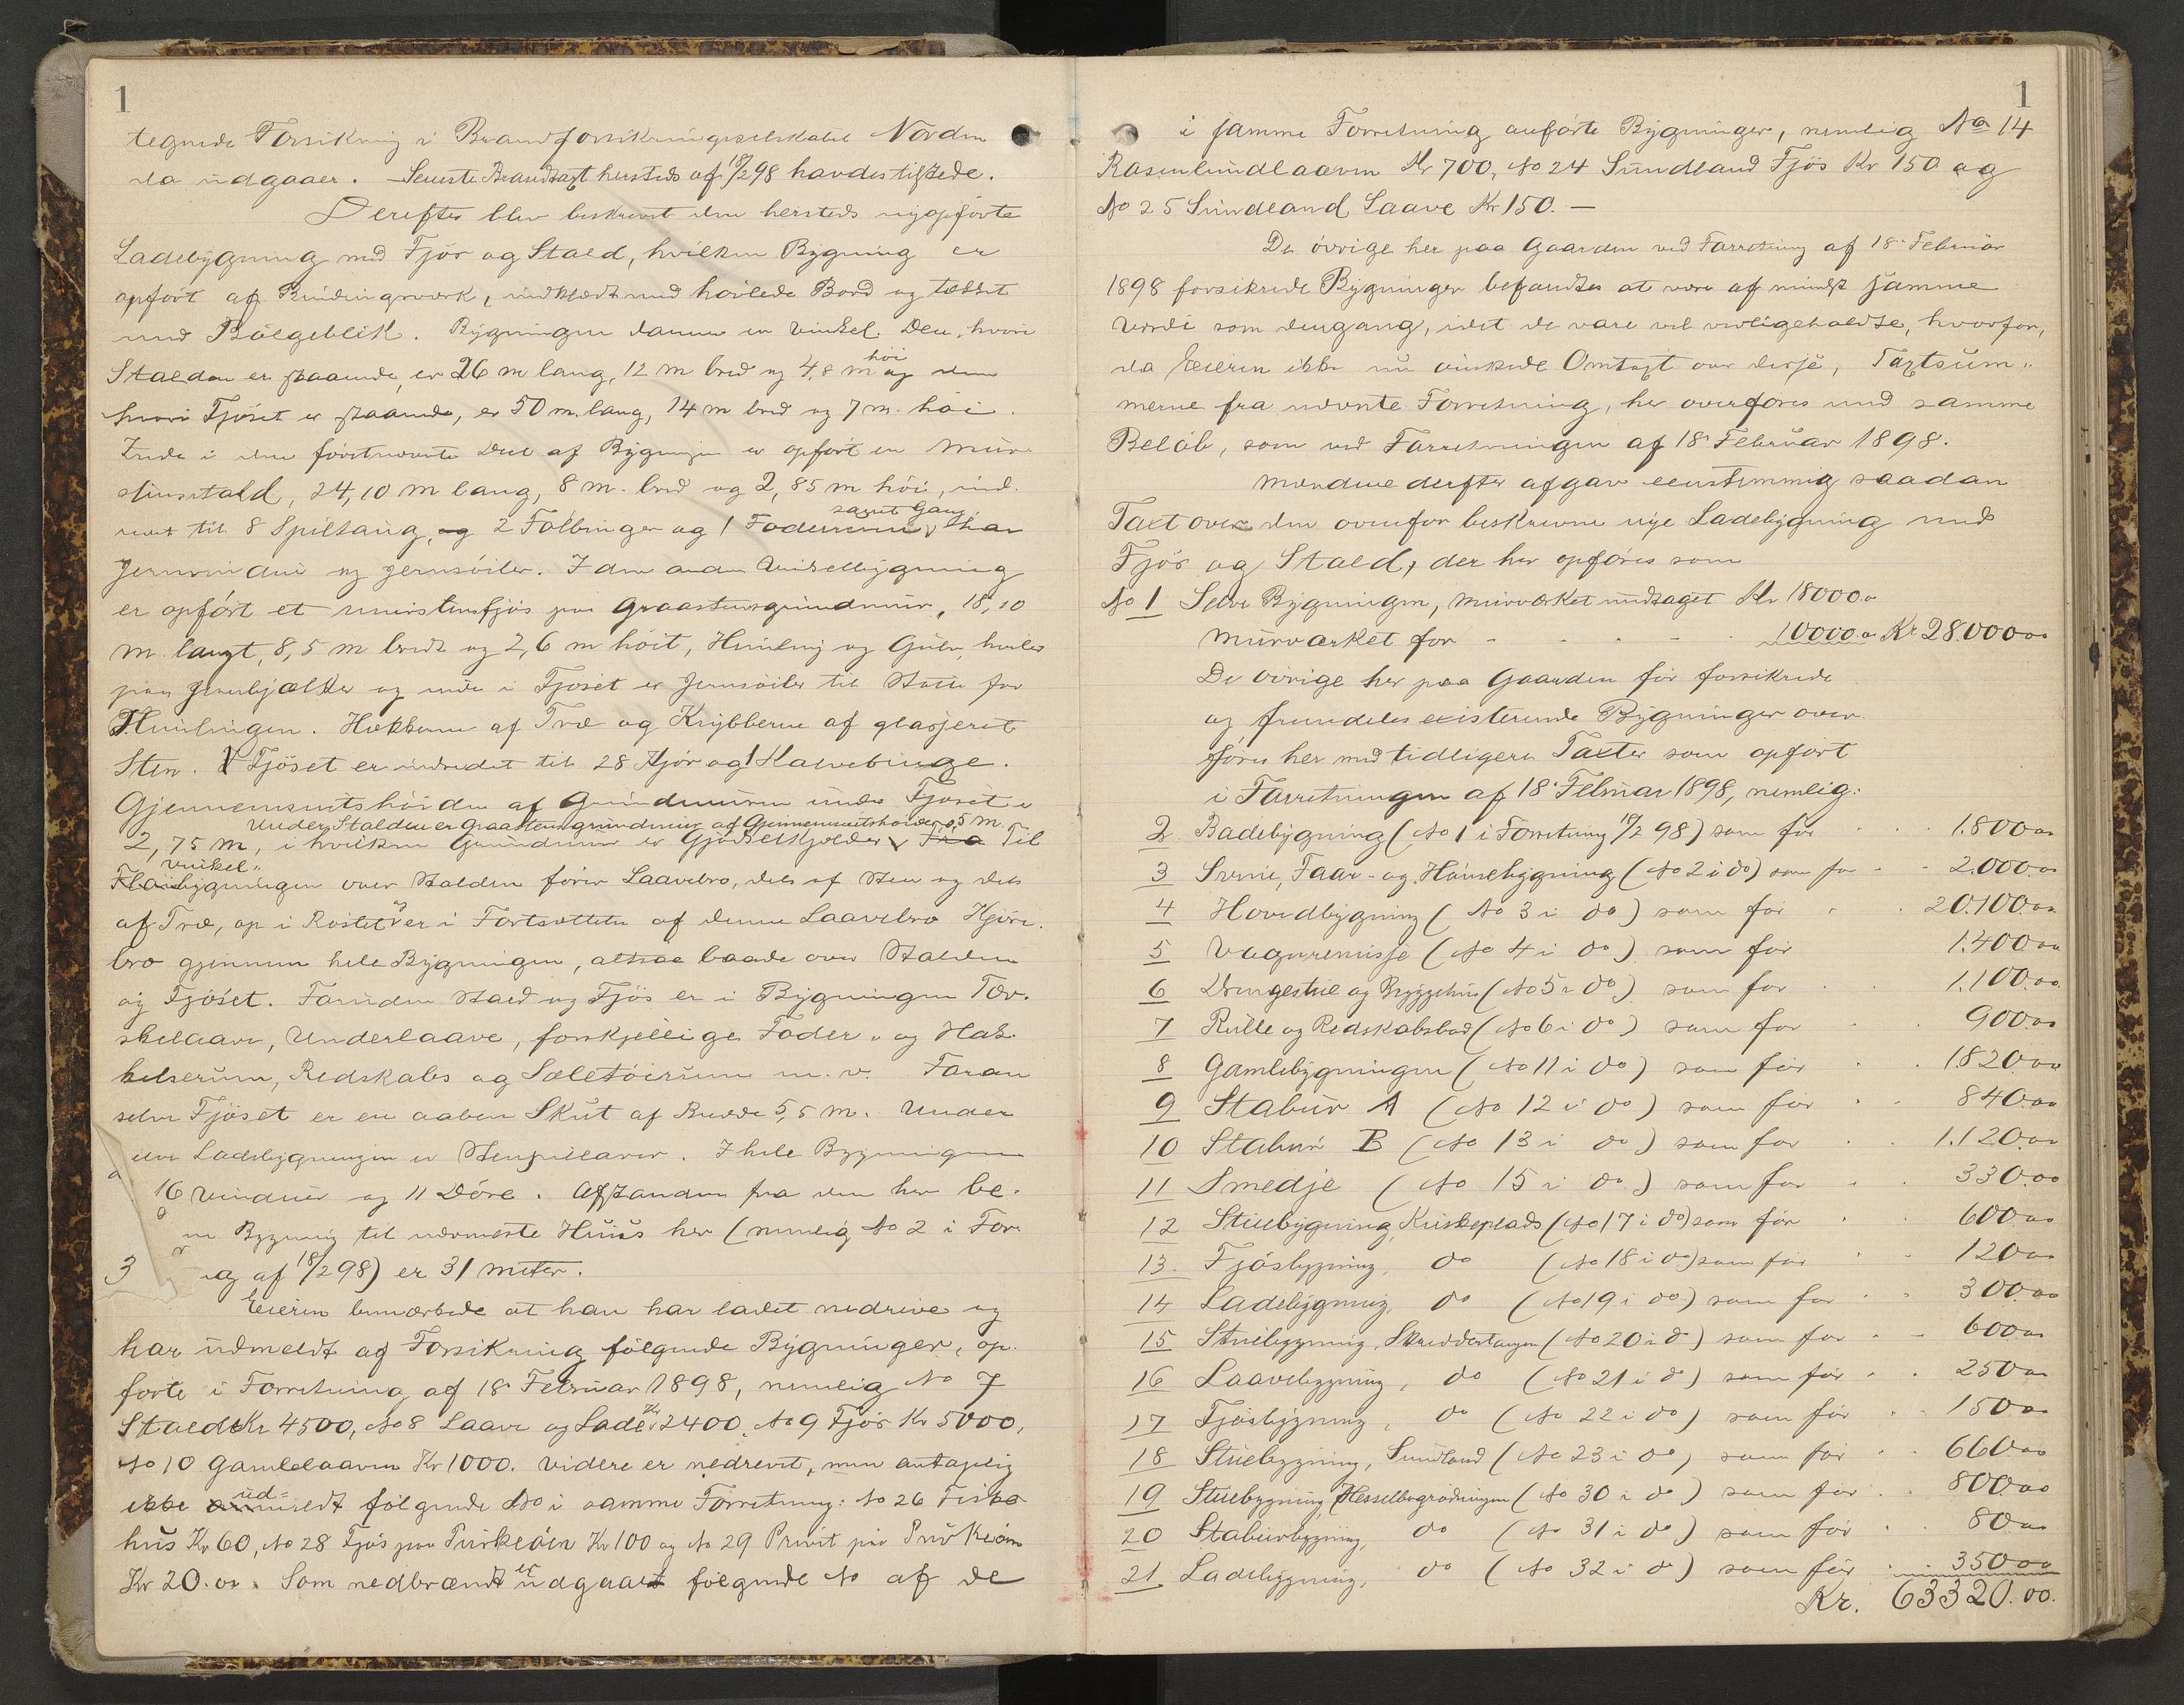 1
tegnede Forsikring i Brandforsikringsselskabet Norden
da udgaaer. Seneste Brandtaxt hersteds af 18/2 98 havdes tilstede.
Derefter blev beskrevet den hersteds nyopförte
Ladebygning med Fjös og Stald, hvilken Bygning er
opfört af Bindingsværk, indklædt med hövlede Bord og tækket
med Bölgeblik. Bygningen danner en Vinkel. Den, hvori
Stalden er staaende, er 26 m lang, 12 m bred og 4,8 m höi og den
hvori Fjöset er staaende, er 50 m. lang, 14 m bred og 7 m. höi.
Inde i den förstnævnte Del af Bygningen er opfört en Mur-
stensstald, 24,10 m lang, 8 m. bred og 2,85 m höi, ind-
redet til 8 Spiltaug, og 2 Fölbinger og 1 Foderrum samt Gang, har
Jernvinduer og Jernsöiler. I den anden Vinkelbygning
er opfört et murstensfjös paa Graastensgrundmur, 18,10
m langt, 8,5 m bredt og 2,6 m höit, Himling og Gulv hviler
paa Jernbjælker og inde i Fjöset er Jernsöiler til Stötte for
Himlingen. Hækkerne af Træ og Krybberne af glasseret
Sten. Fjöset er indredet til 28 Kjör og 1 Kalvebinge.
Gjennemsnitshöiden af Grundmuren under Fjöset er
Under Stalden er Graastensgrundmur af Gjennemsnitshöide 0,5 m.
2,75 m, i hvilken Grundmur er Gjödselkjælder. Fra Til
Vinkel-
Flöibygningen over Stalden förer Laavebro, dels af Sten og dels
af Træ, op i Röstet og er i Fortsættelse af denne Laavebro Kjöre-
bro gjennem hele Bygningen, altsaa baade over Stalden
og Fjöset. Foruden Stald og Fjös er i Bygningen Tær-
skelaave, Underlaave, forskjellige Foder- og Hak-
kelserum, Redskabs og Seletöierum m. v. Foran
selve Fjöset er en aaben Skut af Brede 5,5 m. Under
selve Ladebygningen er Stenpillarer. I hele Bygningen
16 Vinduer og 11 Döre. Afstanden fra den her be-
ne Bygning til nærmeste Huus her (nemlig No 2 i For-
3 ng af 18/2 98) er 31 meter.
Eieren bemærkede at han har ladet nedrive og
har udmeldt af Forsikring fölgende Bygninger, op-
förte i Forretning af 18 Februar 1898, nemlig No 7
Stald Kr 4500, No 8 Laave og Lade Kr 2400, No 9 Fjös Kr 5000,
No 10 Gamlelaaven Kr 1000. Videre er nedrevet, men antagelig
ikke ud- meldt fölgende No i samme Forretning: No 26 Fiske-
hus Kr 60, No 28 Fjös paa Purkeöen Kr 100 og No 29 Privet paa Purkeöen
Kr 20.00. Som nedbrændt er udgaaet fölgende No af de
1
i samme Forretning anförte Bygninger, nemlig No 14
Rosenlundlaaven Kr 700, No 24 Sundland Fjös Kr 150 og
No 25 Sundland Laave Kr 150. —
De övrige her paa Gaarden ved Forretning af 18 Februar
1898 forsikrede Bygninger befandtes at være af mindst samme
Værdi som dengang, idet de vare vel vedligeholdte, hvorfor,
da Eieren ikke nu önskede Omtaxt over disse, Taxtsum-
merne fra nævnte Forretning, her overföres med samme
Belöb, som ved Forretningen af 18 Februar 1898.
Mændene derefter afgav eenstemmig saadan
Taxt over den ovenfor beskrevne nye Ladebygning med
Fjös og Stald, der her opföres som
No 1 Selve Bygningen, murværket undtaget Kr 18000.00
Murværket for - - - - 10000.00 Kr 28.000.00
De övrige her paa Gaarden för forsikrede
og fremdeles existerende Bygninger over-
föres her med tidligere Taxter som opfört
i Forretningen af 18 Februar 1898, nemlig:
2 Badebygning (No 1 i Forretning 18/2 98) som för 1.800.00
3 Svine, Faar- og Hönsebygning (No 2 i do) som för 2.000.00
4 Hovedbygning (No 3 i do) som för 20.100.00
5 Vognremisse (No 4 i do) som för 1.400.00
6 Drengestue og Bryggehus (No 5 i do) som for 1.100.00
7 Rulle og Redskabsbod (No 6 i do) som for 900.00
8 Gamlebygningen (No 11 i do) som för 1820.00
9 Stabur A (No 12 i do) som for 840.00
10 Stabur B (No 13 i do) som for 1.120.00
11 Smedje (No 15 i do) som for 330.00
12 Stuebygning, Kuskeplads (No 17 i do) som för 600.00
13. Fjösbygning, do (No 18 i do) som för 120.00
14 Ladebygning, do (No 19 i do) som for 300.00
15 Stuebygning, Skræddertangen (No 20 i do) som for 600.00
16 Laavebygning, do (No 21 i do) som för 250.00
17 Fjösbygning, do (No 22 i do) som för 150.00
18 Stuebygning, Sundland (No 23 i do) som for 660.00
19 Stuebygning, Hesselbergrødningen (No 30 i do) som for 800.00
20 Stabursbygning, do (No 31 i do) som för 80.00
21 Ladebygning, do (No 32 i do) som för 350.00
Kr. 63320.00.